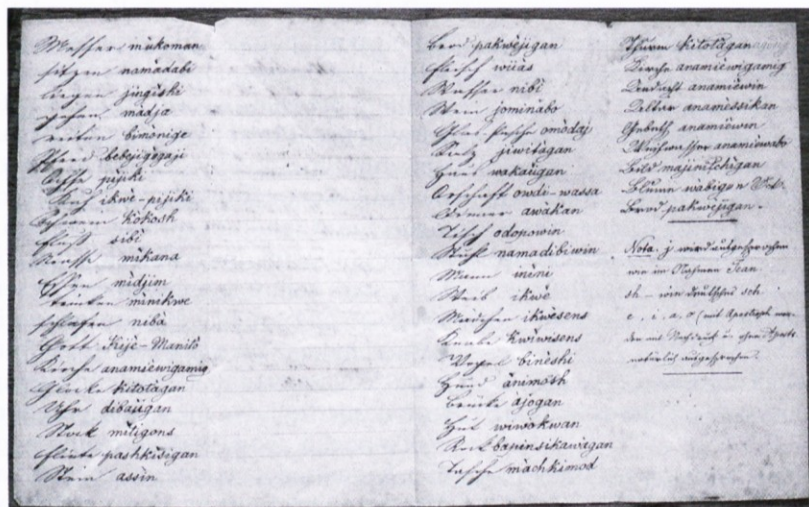 Messer mùkoman
sitzen namàdabi
liegen jingishi
gehen màdja
reiten bimonige
Pferd bebejigogaji
Ochse pijiki
Kuh ikwe-pijiki
Schwein kokosh
Fluß sibi
Strasse mikana
Essen midjim
trinken minikwe
schlafen nibà
Gott Kije-Manito
Kirche anamiewigamig
Glocke kitotàgan
Uhr dibaùgan
Stock mitigons
Flinte pashkisigan
Stein assin
Brod pakwèjigan
Fleisch wiiàs
Wasser nibi
Wein jominàbo
Glas Flasche omòdaj
Salz jiwitàgan
Haus wakaùgan
Ortschaft owde-wassa
Donner awàkan
Tisch odopowin
Stuhl namadibiwin
Mann inini
Weib ikwè
Mädchen ikwèsens
Knabe kwiwisens
Vogel binèshi
Hund ànimòsh
Brücke àjogan
Hut wiwòkwan
Rock bapinsikawàgan
Tasche màchkimod
Thurm kitotàgan
Kirche anamiewigamig
Andacht anamièwin
Altar anamessikan
Gebeth anamièwin
Weihwasser anamiewabo
Bild majinitchigan
Blumen wabigon
Brod pakwèjigan.
Nota. j wird ausgesprochen
wie im Nahmen Jean
sh - wie deutsches sch
e, i, a, o (mit Apostroph wer-
den mit Nachdruck u. ohne
natürlich ausgesprochen.